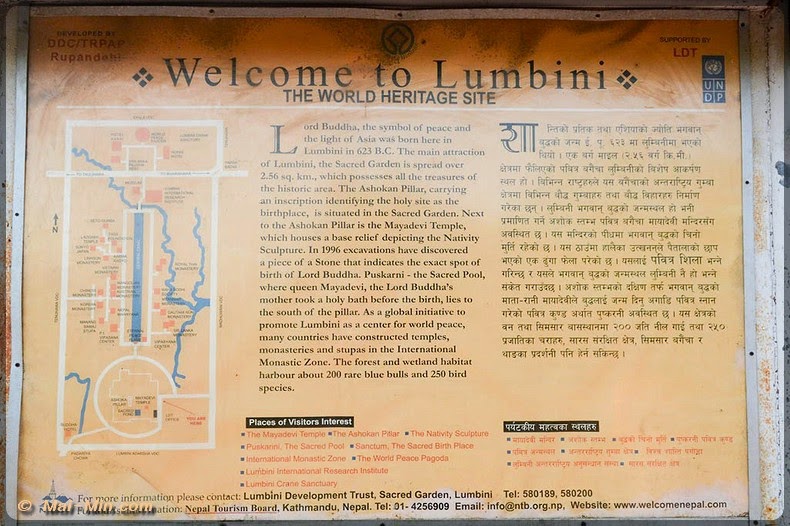 DEVELOPED BY
DDC/TRPAP
Rupandehi
SUPPORTED BY
LDT
UN
DP
Welcome to Lumbini
THE WORLD HERITAGE SITE
Lord Buddha, the symbol of peace and
the light of Asia was born here in
Lumbini in 623 B.C. The main attraction
of Lumbini, the Sacred Garden is spread over
2.56 sq. km., which possesses all the treasures of
the historic area. The Ashokan Pillar, carrying
an inscription identifying the holy site as the
birthplace, is situated in the Sacred Garden. Next
to the Ashokan Pillar is the Mayadevi Temple,
which houses a base relief depicting the Nativity
Sculpture. In 1996 excavations have discovered
a piece of a Stone that indicates the exact spot of
birth of Lord Buddha. Puskarni - the Sacred Pool,
where queen Mayadevi, the Lord Buddha's
mother took a holy bath before the birth, lies to
the south of the pillar. As a global initiative to
promote Lumbini as a center for world peace,
many countries have constructed temples,
monasteries and stupas in the International
Monastic Zone. The forest and wetland habitat
harbour about 200 rare blue bulls and 250 bird
species.
शान्तिको प्रतिक तथा एशियाको ज्योति भगवान्
बुद्धको जन्म ई. पू. ६२३ मा लुम्बिनीमा भएको
थियो । एक वर्ग माइल (२.५६ वर्ग कि.मी.)
क्षेत्रमा फैलिएको पवित्र बगैंचा लुम्बिनीको विशेष आकर्षण
स्थल हो । विभिन्न राष्ट्रहरुले यस बगैंचाको अन्तराष्ट्रिय गुम्बा
क्षेत्रमा विभिन्न बौद्ध गुम्बाहरु तथा बौद्ध विहारहरु निर्माण
गरेका छन् । लुम्बिनी भगवान् बुद्धको जन्मस्थल हो भनी
प्रमाणित गर्ने अशोक स्तम्भ पवित्र बगैंचा मायादेवी मन्दिरसंग
अवस्थित छ । यस मन्दिरको बीचमा भगवान् बुद्धको चिनो
मुर्ति रहेको छ । यस ठाउँमा हालैका उत्खननले पैतालाको छाप
भएको एक ढुंगा फेला परेको छ । यसलाई पवित्र शिला भन्ने
गरिन्छ र यसले भगवान् बुद्धको जन्मस्थल लुम्बिनी नै हो भन्ने
संकेत गराउंदछ । अशोक स्तम्भको दक्षिण तर्फ भगवान् बुद्धको
माता-रानी मायादेवीले बुद्धलाई जन्म दिनु अगाडि पवित्र स्नान
गरेको पवित्र कुण्ड अर्थात पुष्करणी अवस्थित छ । यस क्षेत्रको
वन तथा सिमसार वासस्थानमा २०० जति नील गाई तथा २५०
प्रजातिका चराहरु, सारस संरक्षित क्षेत्र, सिमसार बगैंचा र
थाङका प्रदर्शनी पनि हेर्न सकिन्छ ।
N
ASHOKA PILLAR
MAYADEVI TEMPLE
SACRED POOL
LDT OFFICE
YOU ARE HERE
Places of Visitors Interest
The Mayadevi Temple The Ashokan Pillar The Nativity Sculpture
Puskarini, The Sacred Pool Sanctum, The Sacred Birth Place
International Monastic Zone The World Peace Pagoda
Lumbini International Research Institute
Lumbini Crane Sanctuary
पर्यटकीय महत्वका स्थलहरु
मायादेवी मन्दिर अशोक स्तम्भ बुद्धको चिनो मुर्ति पुष्करणी पवित्र कुण्ड
पवित्र जन्मस्थल अन्तरराष्ट्रिय गुम्बा क्षेत्र विश्व शान्ति
लुम्बिनी अन्तरराष्ट्रिय अनुसन्धान संस्था सारस संरक्षित क्षेत्र
For more information please contact: Lumbini Development Trust, Sacred Garden, Lumbini Tel: 580189, 580200
Nepal Tourism Board, Kathmandu, Nepal. Tel: 01- 4256909 Email: info@ntb.org.np, Website: www.welcomenepal.com